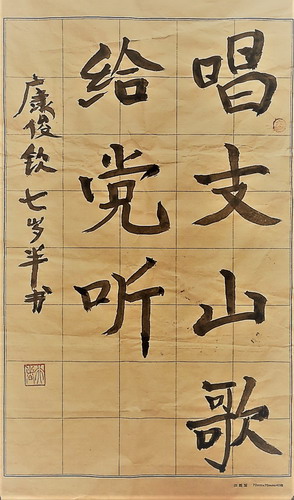 唱支山歌
给党听
康俊钦七岁半书